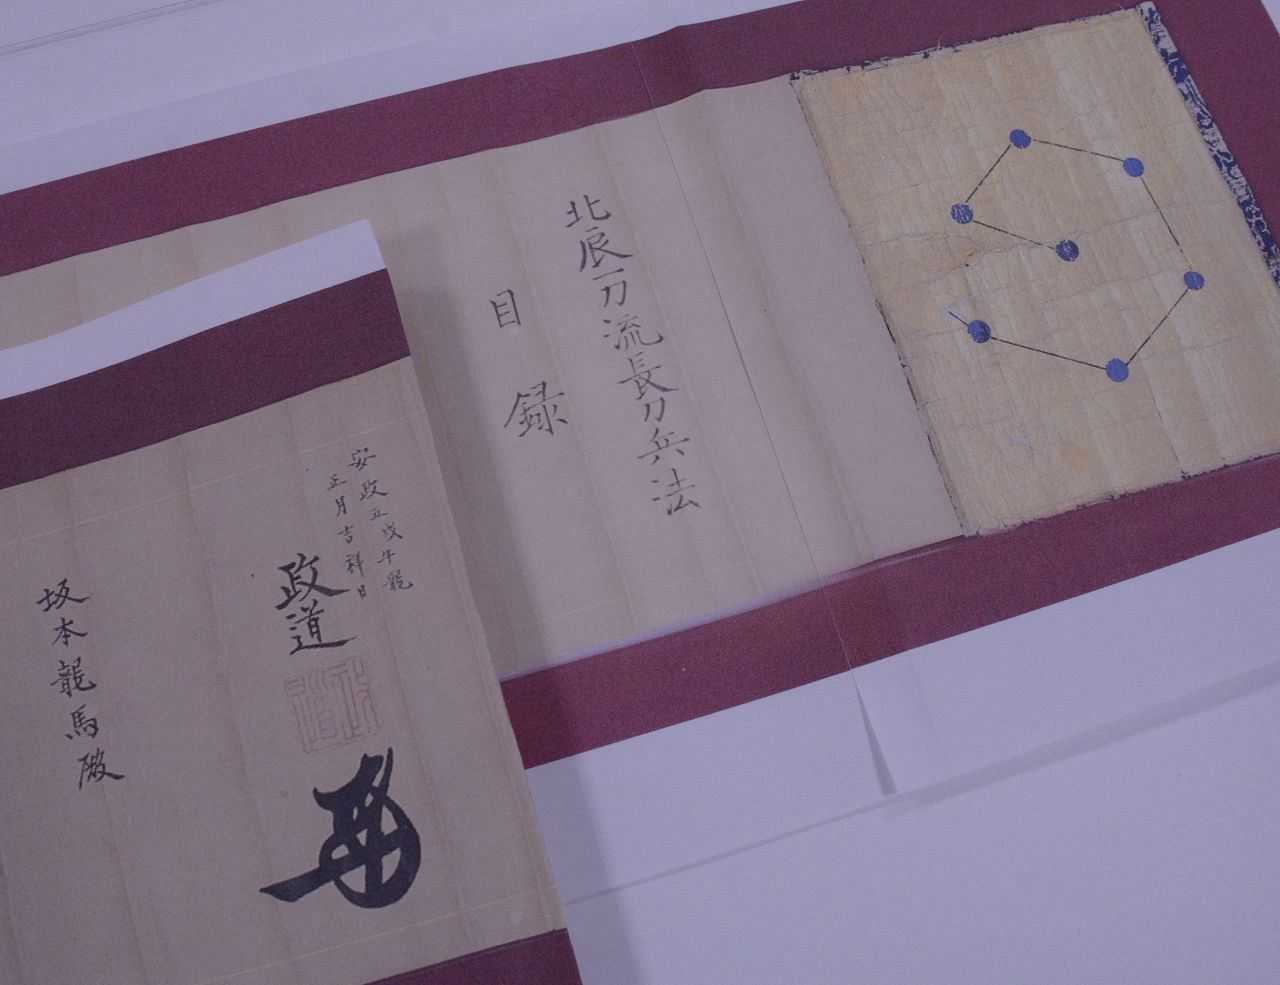 北辰一刀流長刀兵法
目録
安政五戊午龍
正月吉祥日
政道
坂本龍馬殿